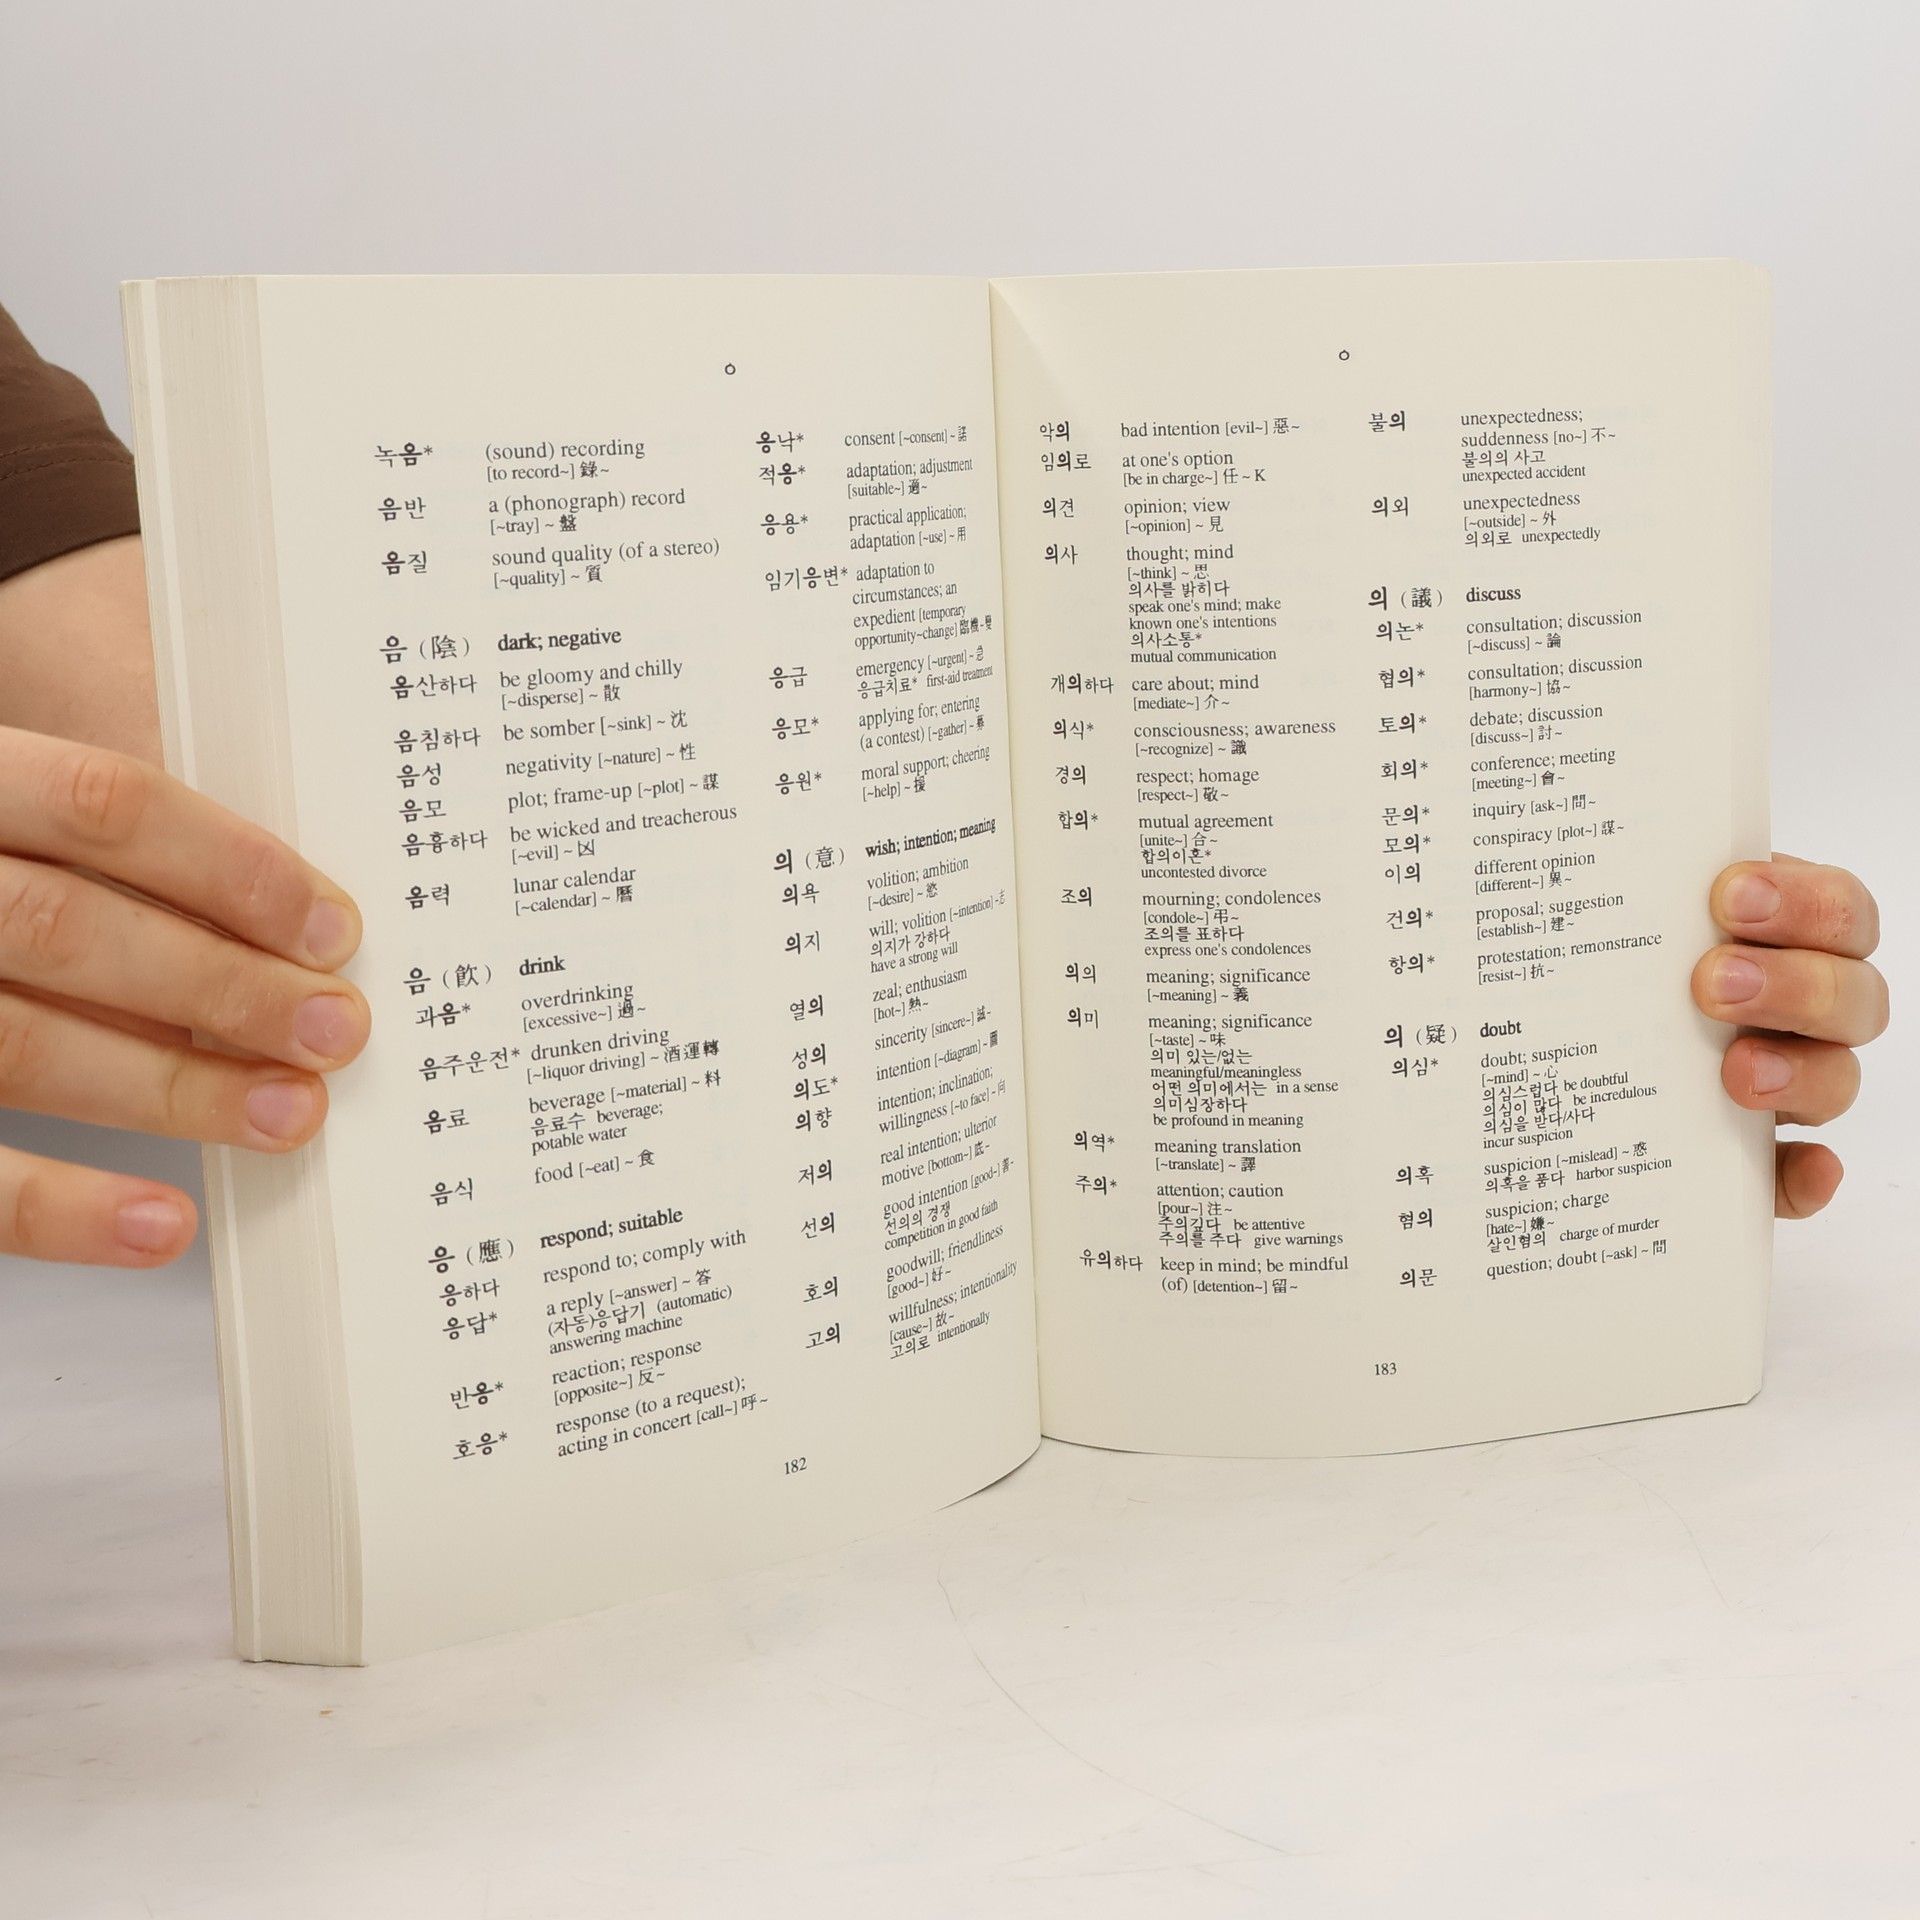 ㅇ
녹음* (sound) recording
[to record~] 錄~
음반 a (phonograph) record
[~tray] ~ 盤
음질 sound quality (of a stereo)
[~quality] ~ 質
음 (陰) dark; negative
음산하다 be gloomy and chilly
[~disperse] ~ 散
음침하다 be somber [~sink] ~ 沈
음성 negativity [~nature] ~ 性
음모 plot; frame-up [~plot] ~ 謀
음흉하다 be wicked and treacherous
[~evil] ~ 凶
음력 lunar calendar
[~calendar] ~ 曆
음 (飮) drink
과음* overdrinking
[excessive~] 過~
음주운전* drunken driving
[~liquor driving] ~ 酒運轉
음료 beverage [~material] ~ 料
음료수 beverage;
potable water
음식 food [~eat] ~ 食
응 (應) respond; suitable
응하다 respond to; comply with
응답* a reply [~answer] ~ 答
(자동)응답기 (automatic)
answering machine
반응* reaction; response
[opposite~] 反~
호응* response (to a request);
acting in concert [call~] 呼~
응낙* consent [~consent] ~ 諾
적응* adaptation; adjustment
[suitable~] 適~
응용* practical application;
adaptation [~use] ~ 用
임기응변* adaptation to
circumstances; an
expedient [temporary
opportunity~change] 臨機~變
응급 emergency [~urgent] ~ 急
응급치료* first-aid treatment
응모* applying for; entering
(a contest) [~gather] ~ 募
응원* moral support; cheering
[~help] ~ 援
의 (意) wish; intention; meaning
의욕 volition; ambition
[~desire] ~ 慾
의지 will; volition [~intention] ~ 志
의지가 강하다
have a strong will
열의 zeal; enthusiasm
[hot~] 熱~
성의 sincerity [sincere~] 誠~
의도* intention [~diagram] ~ 圖
의향 intention; inclination;
willingness [~to face] ~ 向
저의 real intention; ulterior
motive [bottom~] 底~
선의 good intention [good~] 善~
선의의 경쟁
competition in good faith
호의 goodwill; friendliness
[good~] 好~
고의 willfulness; intentionality
[cause~] 故~
고의로 intentionally
182
ㅇ
악의 bad intention [evil~] 惡~
임의로 at one's option
[be in charge~] 任 ~ K
의견 opinion; view
[~opinion] ~ 見
의사 thought; mind
[~think] ~ 思
의사를 밝히다
speak one's mind; make
known one's intentions
의사소통*
mutual communication
개의하다 care about; mind
[mediate~] 介~
의식* consciousness; awareness
[~recognize] ~ 識
경의 respect; homage
[respect~] 敬~
합의* mutual agreement
[unite~] 合~
합의이혼*
uncontested divorce
조의 mourning; condolences
[condole~] 弔~
조의를 표하다
express one's condolences
의의 meaning; significance
[~meaning] ~ 義
의미 meaning; significance
[~taste] ~ 味
의미 있는/없는
meaningful/meaningless
어떤 의미에서는 in a sense
의미심장하다
be profound in meaning
의역* meaning translation
[~translate] ~ 譯
주의* attention; caution
[pour~] 注~
주의깊다 be attentive
주의를 주다 give warnings
유의하다 keep in mind; be mindful
(of) [detention~] 留~
불의 unexpectedness;
suddenness [no~] 不~
불의의 사고
unexpected accident
의외 unexpectedness
[~outside] ~ 外
의외로 unexpectedly
의 (議) discuss
의논* consultation; discussion
[~discuss] ~ 論
협의* consultation; discussion
[harmony~] 協~
토의* debate; discussion
[discuss~] 討~
회의* conference; meeting
[meeting~] 會~
문의* inquiry [ask~] 問~
모의* conspiracy [plot~] 謀~
이의 different opinion
[different~] 異~
건의* proposal; suggestion
[establish~] 建~
항의* protestation; remonstrance
[resist~] 抗~
의 (疑) doubt
의심* doubt; suspicion
[~mind] ~ 心
의심스럽다 be doubtful
의심이 많다 be incredulous
의심을 받다/사다
incur suspicion
의혹 suspicion [~mislead] ~ 惑
의혹을 품다 harbor suspicion
혐의 suspicion; charge
[hate~] 嫌~
살인혐의 charge of murder
의문 question; doubt [~ask] ~ 問
183